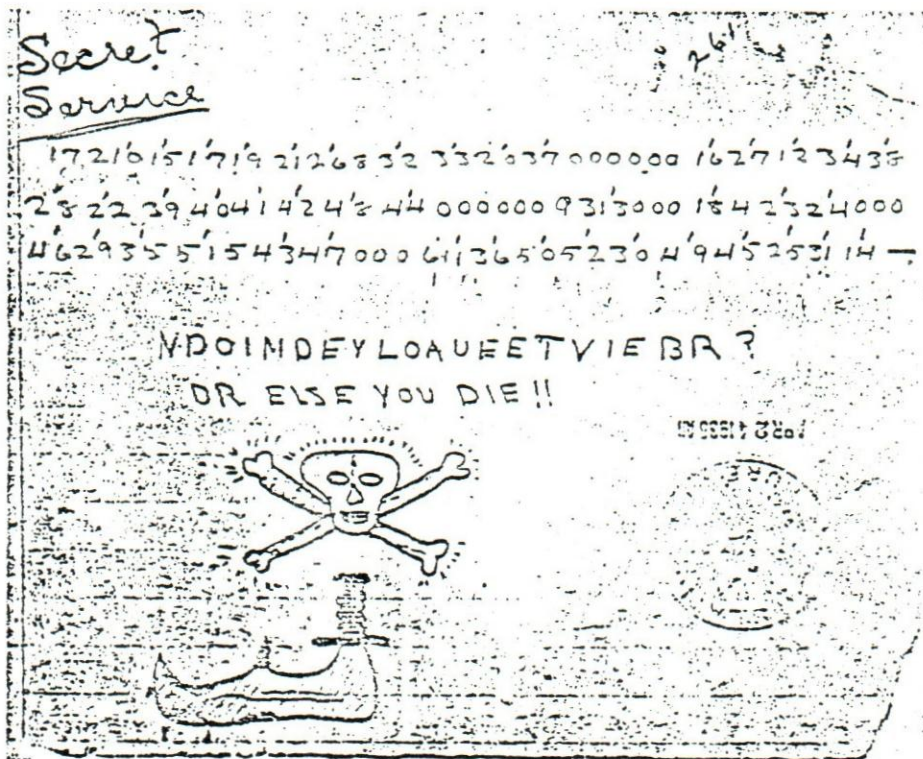 Secret
Service
1721'01'51'71'9 21'2683'2 3'32'03'7000000 1'62'71'23'43'8
2'82'23'94'04'14'24'84'4 000000 931'3000 1'842'32'4000
4'62'93'55'154'34'7000 61'13'65'05'23'04'94'52'53'11'4 —
NDOINDEYLOAUEETVIEBR?
OR ELSE YOU DIE!!